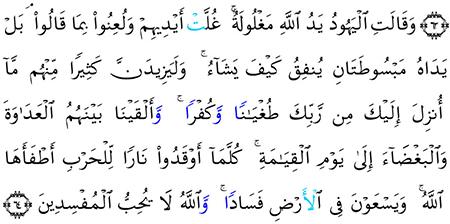 ﴿٦٣﴾ وَقَالَتِ ٱلْيَهُودُ يَدُ ٱللَّهِ مَغْلُولَةٌ ۚ غُلَّتْ أَيْدِيهِمْ وَلُعِنُوا۟ بِمَا قَالُوا۟ ۘ بَلْ
يَدَاهُ مَبْسُوطَتَانِ يُنفِقُ كَيْفَ يَشَآءُ ۚ وَلَيَزِيدَنَّ كَثِيرًا مِّنْهُم مَّآ
أُنزِلَ إِلَيْكَ مِن رَّبِّكَ طُغْيَـٰنًا وَكُفْرًا ۚ وَأَلْقَيْنَا بَيْنَهُمُ ٱلْعَدَٰوَةَ
وَٱلْبَغْضَآءَ إِلَىٰ يَوْمِ ٱلْقِيَـٰمَةِ ۚ كُلَّمَآ أَوْقَدُوا۟ نَارًا لِّلْحَرْبِ أَطْفَأَهَا
ٱللَّهُ ۚ وَيَسْعَوْنَ فِى ٱلْأَرْضِ فَسَادًا ۚ وَٱللَّهُ لَا يُحِبُّ ٱلْمُفْسِدِينَ ﴿٦٤﴾